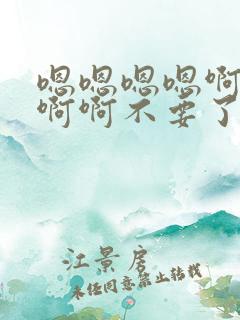 嗯嗯嗯嗯啊
啊啊不要了
江景房
未经同意禁止转载